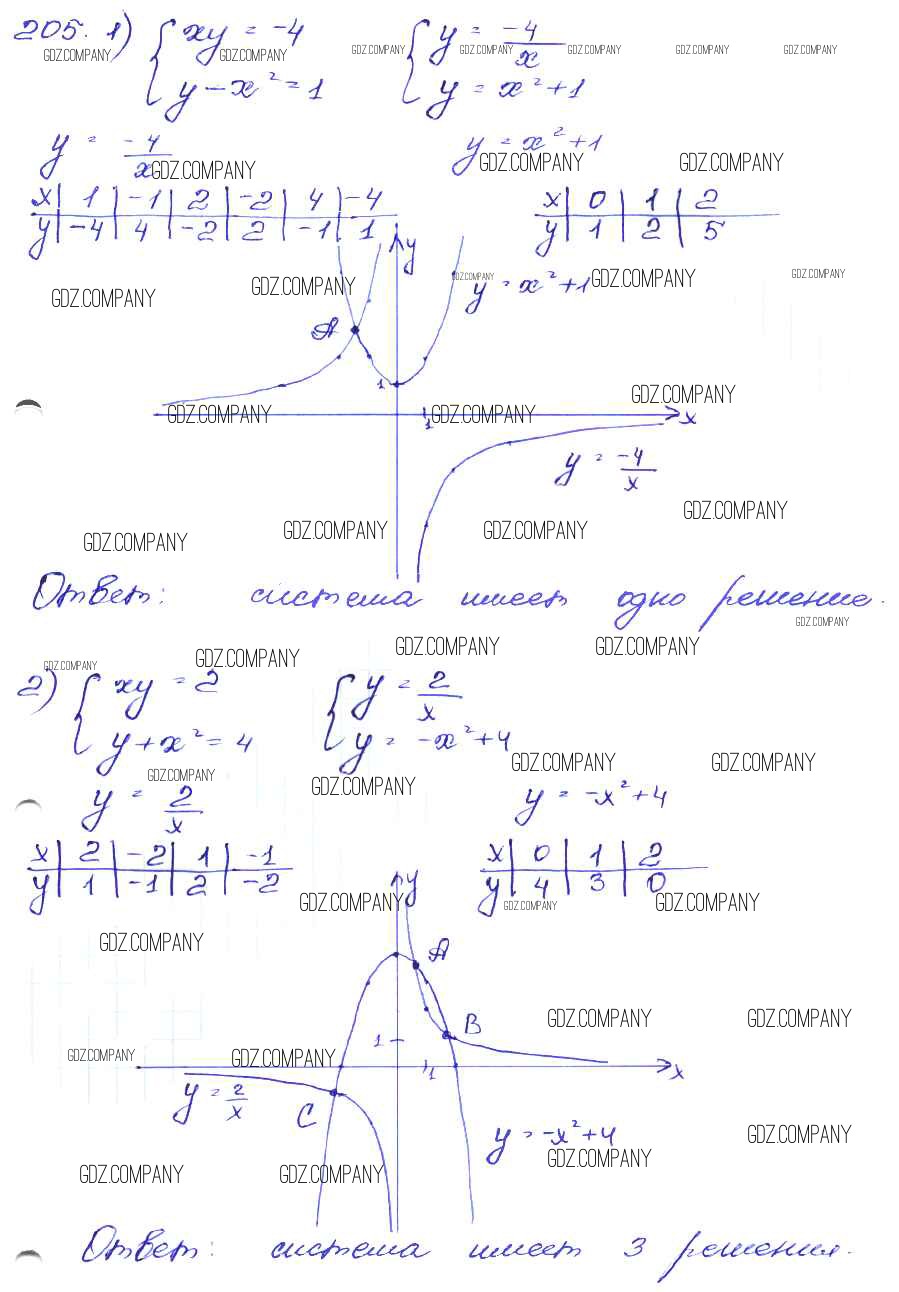 205. 1) { xy = -4 { y = -4/x
GDZ.COMPANY GDZ.COMPANY GDZ.COMPANY GDZ.COMPANY GDZ.COMPANY GDZ.COMPANY GDZ.COMPANY
y - x² = 1 y = x² + 1
y = -4/x y = x² + 1
GDZ.COMPANY GDZ.COMPANY GDZ.COMPANY
x | 1 | -1 | 2 | -2 | 4 | -4 x | 0 | 1 | 2
y | -4 | 4 | -2 | 2 | -1 | 1 y | 1 | 2 | 5
y
GDZ.COMPANY GDZ.COMPANY GDZ.COMPANY GDZ.COMPANY GDZ.COMPANY
y = x² + 1
A
1
GDZ.COMPANY
GDZ.COMPANY 1 GDZ.COMPANY x
y = -4/x
GDZ.COMPANY
GDZ.COMPANY GDZ.COMPANY GDZ.COMPANY
Ответ: система имеет одно решение.
GDZ.COMPANY
GDZ.COMPANY GDZ.COMPANY GDZ.COMPANY GDZ.COMPANY
2) { xy = 2 { y = 2/x
y + x² = 4 y = -x² + 4
GDZ.COMPANY GDZ.COMPANY GDZ.COMPANY GDZ.COMPANY
y = 2/x y = -x² + 4
x | 2 | -2 | 1 | -1 x | 0 | 1 | 2
y | 1 | -1 | 2 | -2 y | 4 | 3 | 0
y
GDZ.COMPANY GDZ.COMPANY GDZ.COMPANY
GDZ.COMPANY
A
B
GDZ.COMPANY GDZ.COMPANY
1
GDZ.COMPANY GDZ.COMPANY
1 x
y = 2/x
C
y = -x² + 4
GDZ.COMPANY
GDZ.COMPANY
GDZ.COMPANY GDZ.COMPANY
Ответ: система имеет 3 решения.